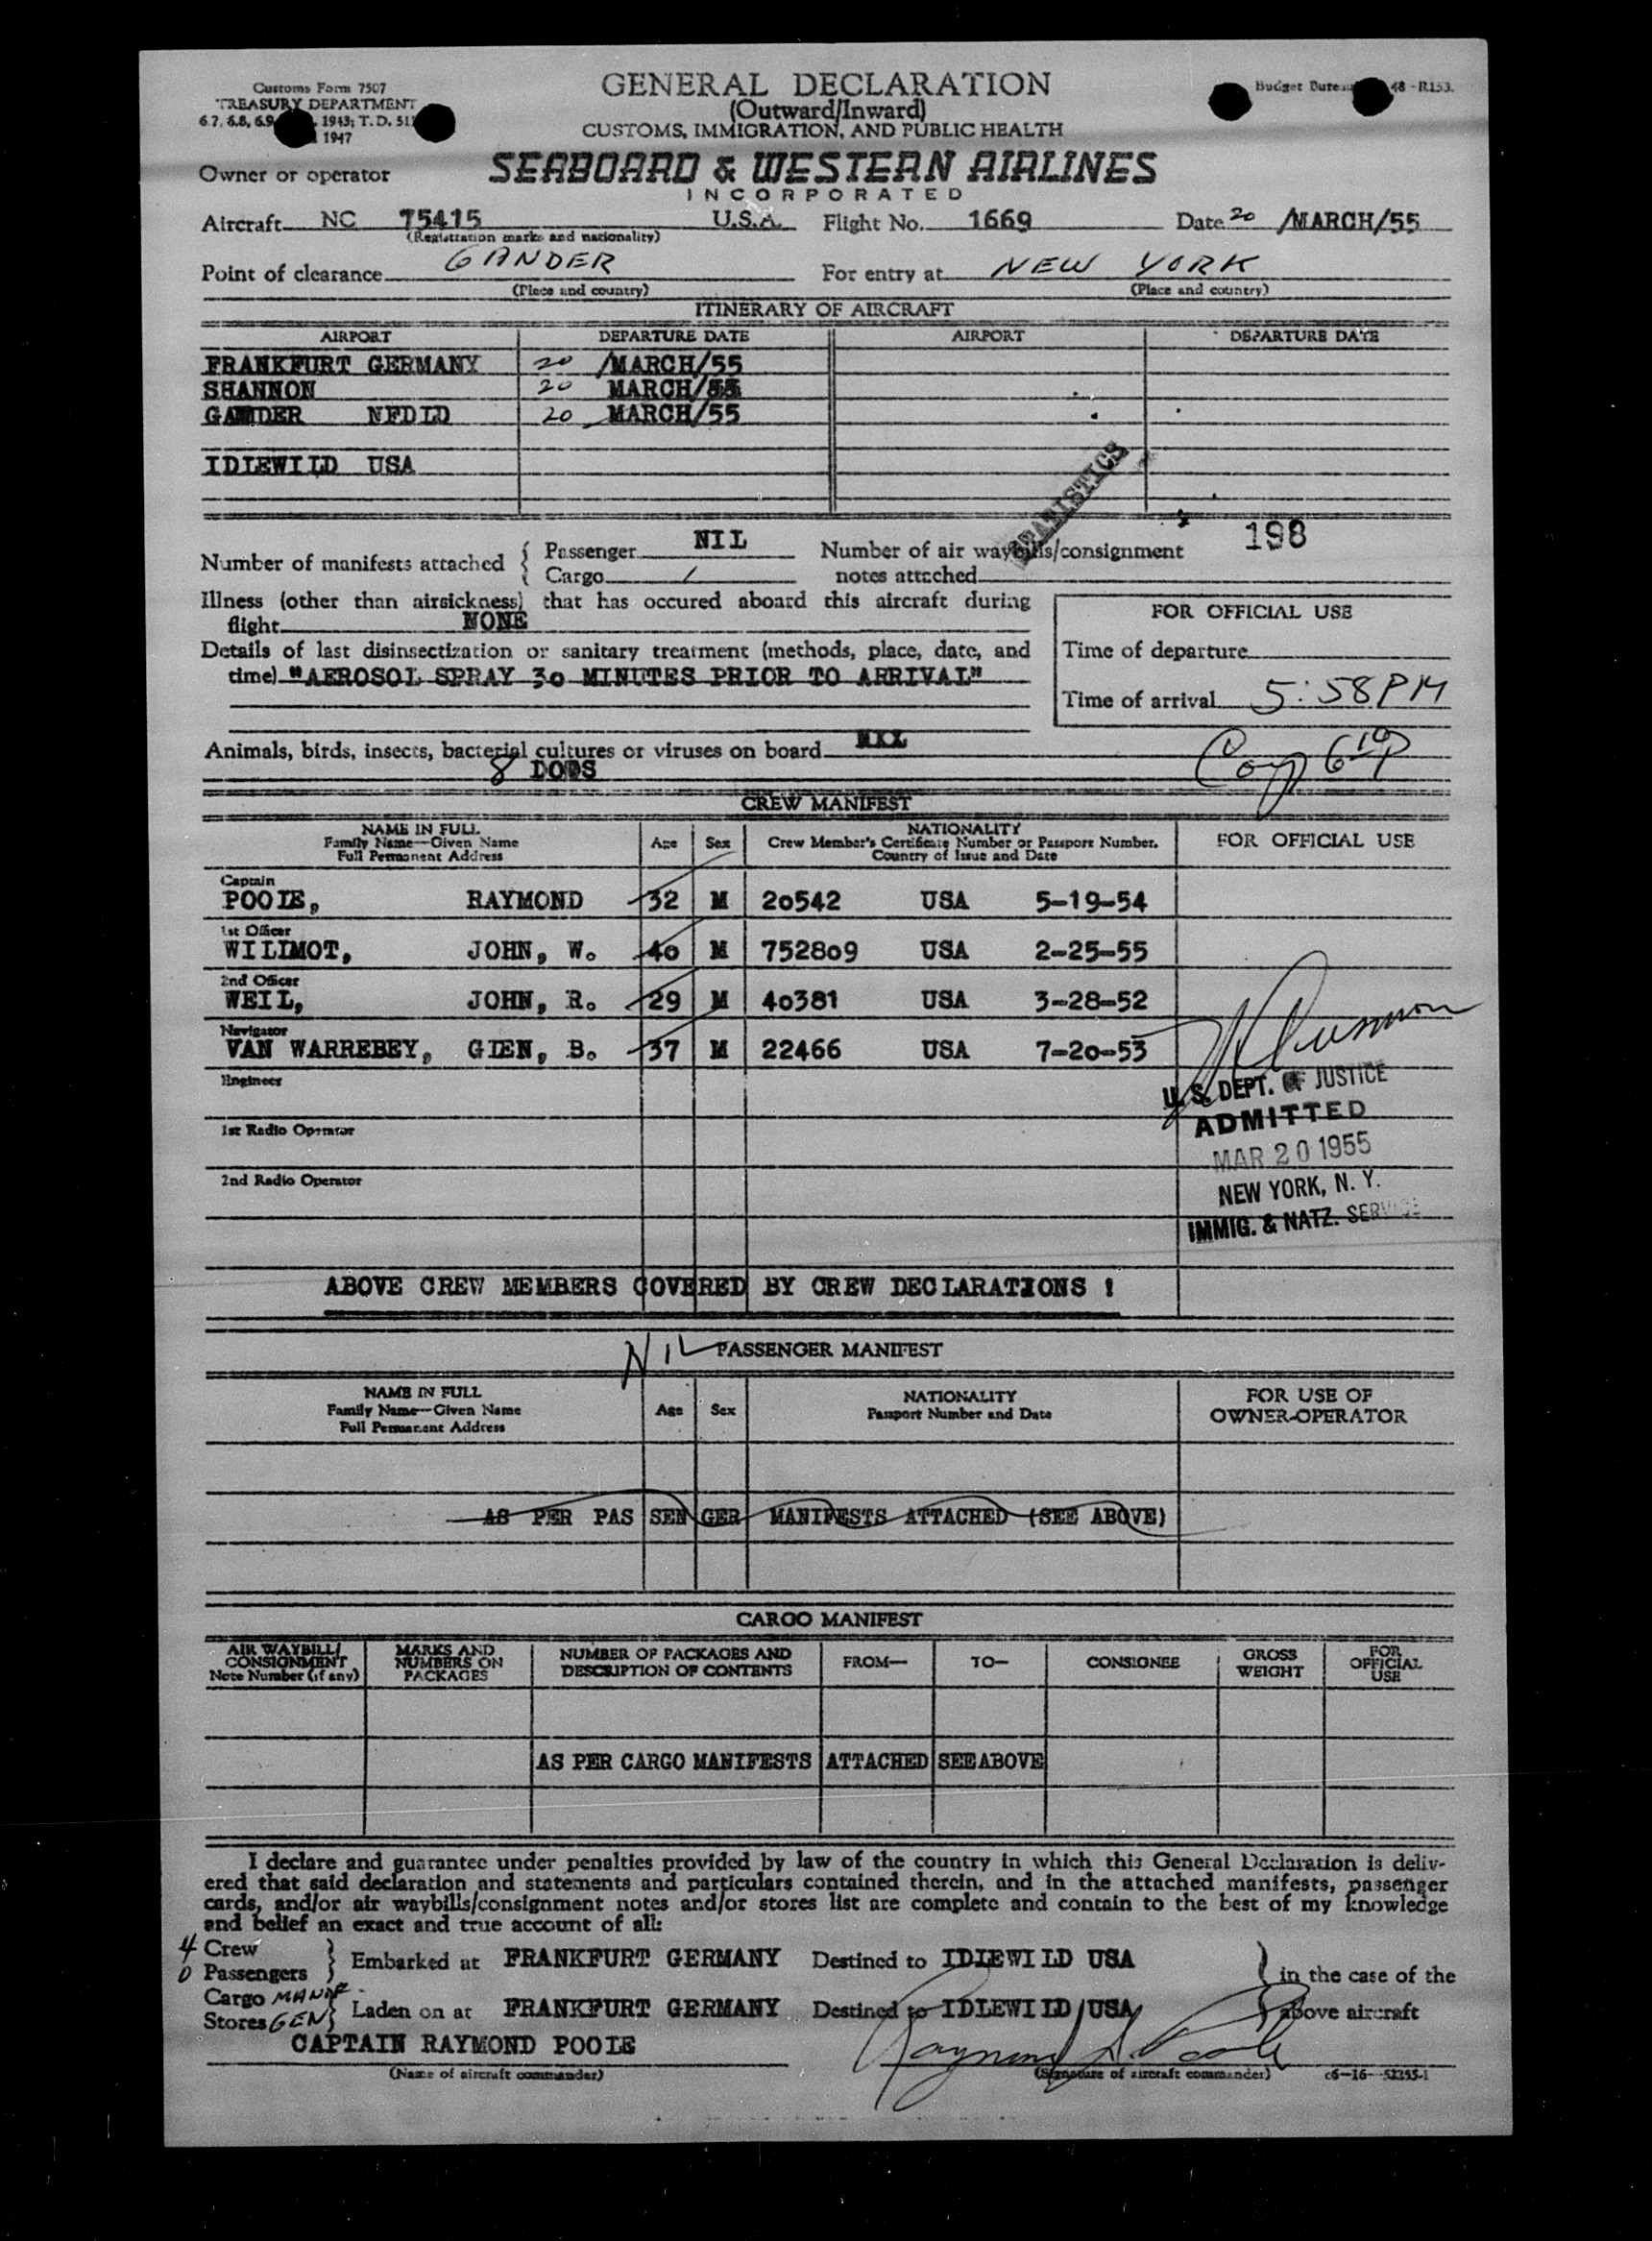 Customs Form 7507
TREASURY DEPARTMENT
6.7, 6.8, 6.9, 1943; T.D. 51
1947
GENERAL DECLARATION
(Outward/Inward)
CUSTOMS, IMMIGRATION, AND PUBLIC HEALTH
Budget Bureau 48-R153.
Owner or operator SEABOARD & WESTERN AIRLINES
INCORPORATED
Aircraft NC 75415 U.S.A. Flight No. 1669 Date 20 /MARCH/55
(Registration marks and nationality)
Point of clearance GANDER For entry at NEW YORK
(Place and country) (Place and country)
ITINERARY OF AIRCRAFT
AIRPORT DEPARTURE DATE AIRPORT DEPARTURE DATE
FRANKFURT GERMANY 20 /MARCH/55
SHANNON 20 MARCH/55
GANDER NFDLD 20 MARCH/55
IDLEWILD USA
STATISTICS
Number of manifests attached { Passenger NIL Number of air waybills/consignment 198
Cargo / notes attached
Illness (other than airsickness) that has occured aboard this aircraft during
flight NONE
FOR OFFICIAL USE
Details of last disinsectization or sanitary treatment (methods, place, date, and
time) "AEROSOL SPRAY 30 MINUTES PRIOR TO ARRIVAL"
Time of departure
Time of arrival 5:58PM
Animals, birds, insects, bacterial cultures or viruses on board NIL
8 DOGS
CREW MANIFEST
NAME IN FULL
Family Name—Given Name
Full Permanent Address
Age Sex
NATIONALITY
Crew Member's Certificate Number or Passport Number,
Country of Issue and Date
FOR OFFICIAL USE
Captain
POOLE, RAYMOND 32 M 20542 USA 5-19-54
1st Officer
WILLMOT, JOHN, W. 40 M 752809 USA 2-25-55
2nd Officer
WEIL, JOHN, R. 29 M 40381 USA 3-28-52
Navigator
VAN WARREBEY, GLEN, B. 37 M 22466 USA 7-20-53
Engineer
1st Radio Operator
2nd Radio Operator
U.S. DEPT. OF JUSTICE
ADMITTED
MAR 20 1955
NEW YORK, N. Y.
IMMIG. & NATZ. SERVICE
ABOVE CREW MEMBERS COVERED BY CREW DECLARATIONS !
NIL PASSENGER MANIFEST
NAME IN FULL
Family Name—Given Name
Full Permanent Address
Age Sex
NATIONALITY
Passport Number and Date
FOR USE OF
OWNER-OPERATOR
AS PER PASSENGER MANIFESTS ATTACHED (SEE ABOVE)
CARGO MANIFEST
AIR WAYBILL/
CONSIGNMENT
Note Number (if any)
MARKS AND
NUMBERS ON
PACKAGES
NUMBER OF PACKAGES AND
DESCRIPTION OF CONTENTS
FROM— TO— CONSIGNEE
GROSS
WEIGHT
FOR
OFFICIAL
USE
AS PER CARGO MANIFESTS ATTACHED SEE ABOVE
I declare and guarantee under penalties provided by law of the country in which this General Declaration is deliv-
ered that said declaration and statements and particulars contained therein, and in the attached manifests, passenger
cards, and/or air waybills/consignment notes and/or stores list are complete and contain to the best of my knowledge
and belief an exact and true account of all:
4 Crew
0 Passengers } Embarked at FRANKFURT GERMANY Destined to IDLEWILD USA } in the case of the
Cargo MANIF
Stores GEN } Laden on at FRANKFURT GERMANY Destined to IDLEWILD USA } above aircraft
CAPTAIN RAYMOND POOLE Raymond S. Poole
(Name of aircraft commander) (Signature of aircraft commander) c6—16—52255-1